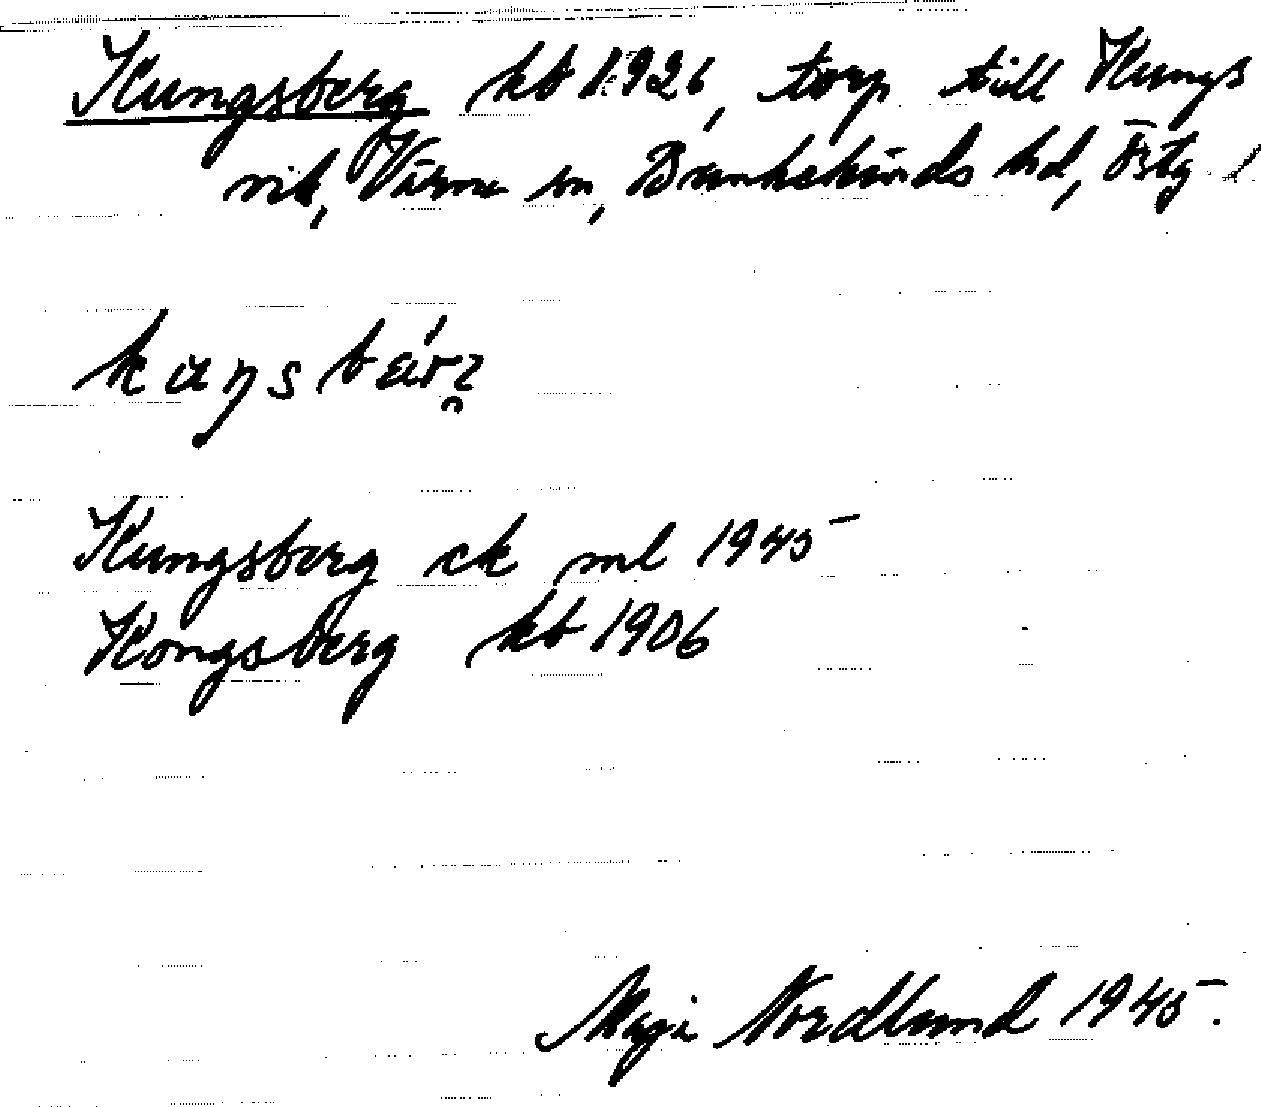 Kungsberg kb 1926, torp till Kungs
vik, Värna sn, Bankekinds hd, Östg l
Kungsberg ek ml 1945
Kongsberg kb 1906
Maji Nordlund 1945.